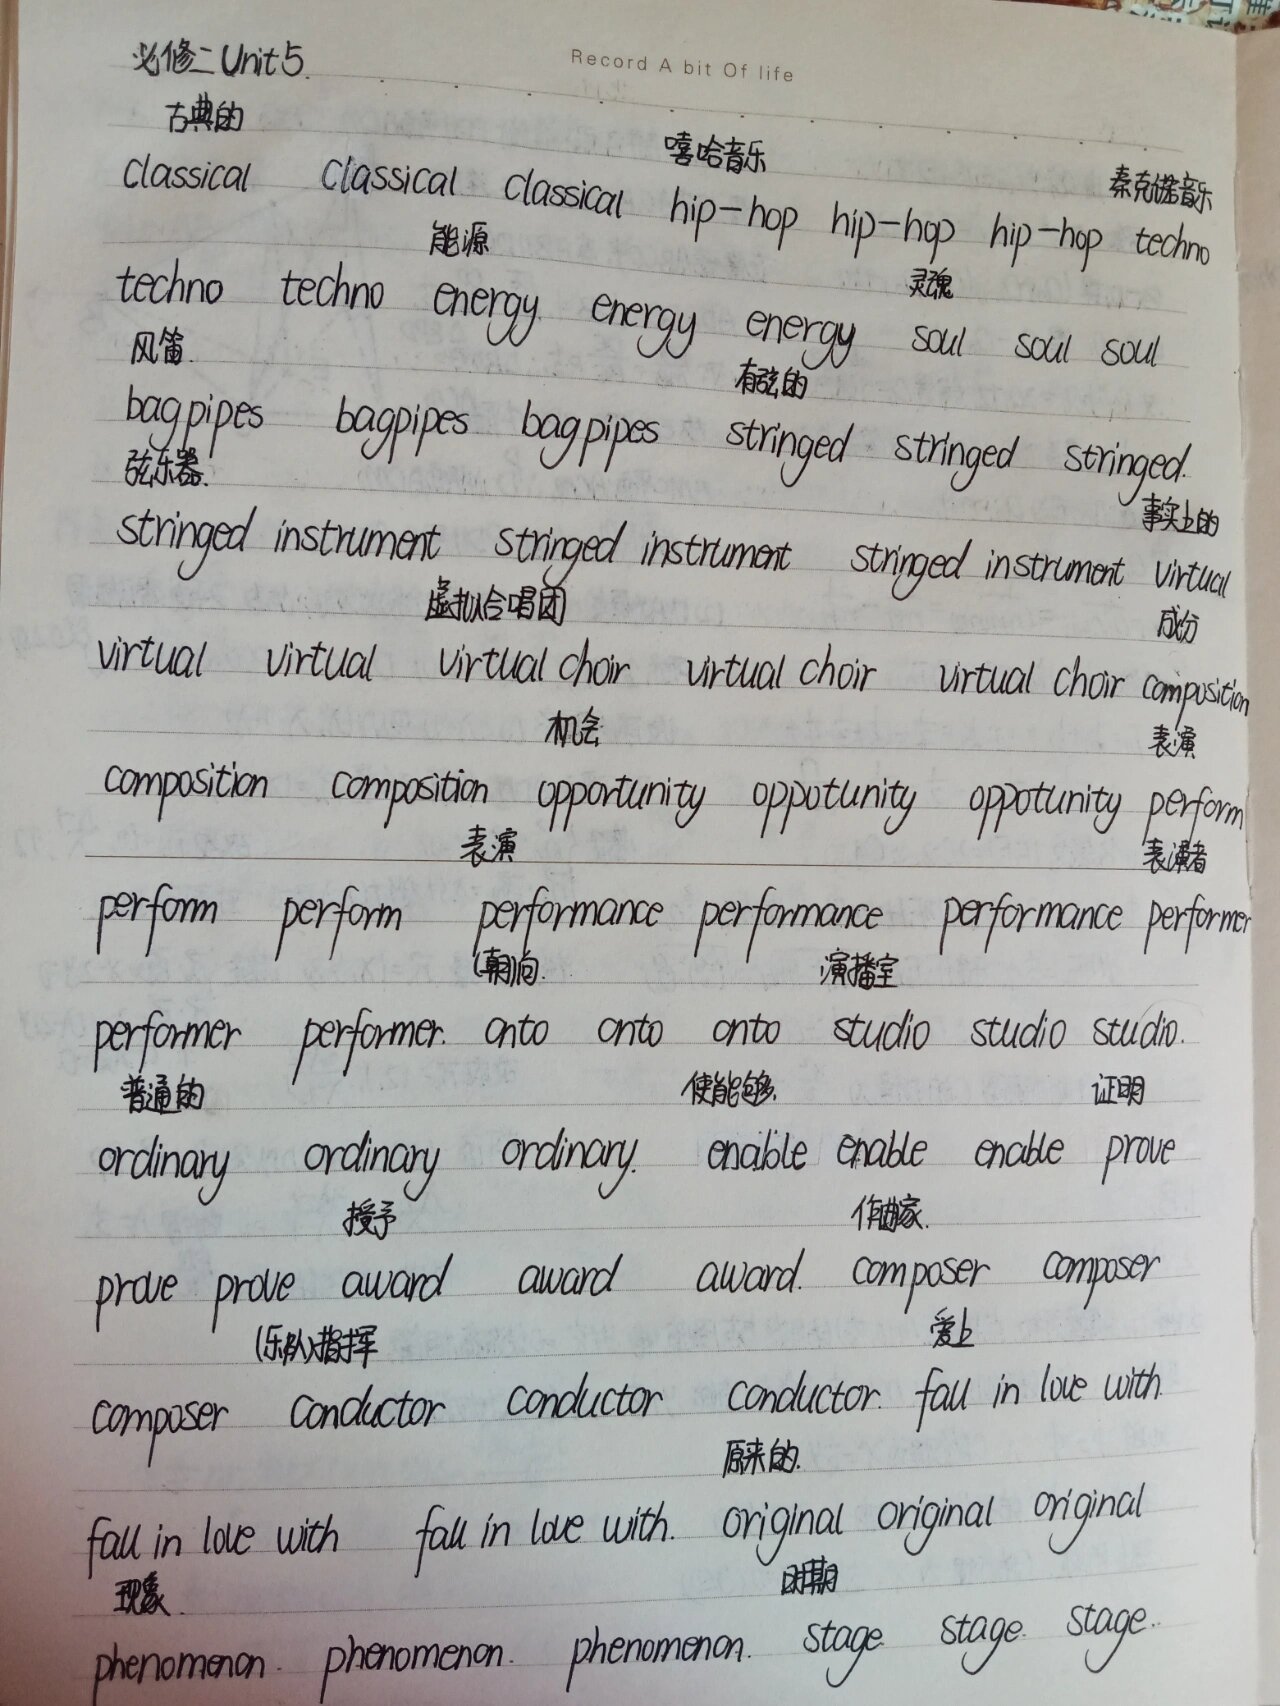 必修二 Unit 5.
Record A bit Of life
古典的 嘻哈音乐 泰克诺音乐
classical classical classical hip-hop hip-hop hip-hop techno
能源 灵魂
techno techno energy energy energy soul soul soul
风笛. 有弦的
bagpipes bagpipes bagpipes stringed stringed stringed.
弦乐器. 事实上的
stringed instrument stringed instrument stringed instrument virtual
虚拟合唱团 成分
virtual virtual virtual choir virtual choir virtual choir composition
机会 表演
composition composition opportunity oppotunity oppotunity perform
表演 表演者
perform perform performance performance performance performer
(朝)向. 演播室
performer performer. onto onto onto studio studio studio.
普通的 使能够. 证明
ordinary ordinary ordinary. enable enable enable prove
授予 作曲家.
prove prove award award award. composer composer
(乐队)指挥 爱上
composer conductor conductor conductor. fall in love with.
原来的.
fall in love with fall in love with. original original original
现象. 时期
phenomenon. phenomenon. phenomenon. stage. stage. stage..